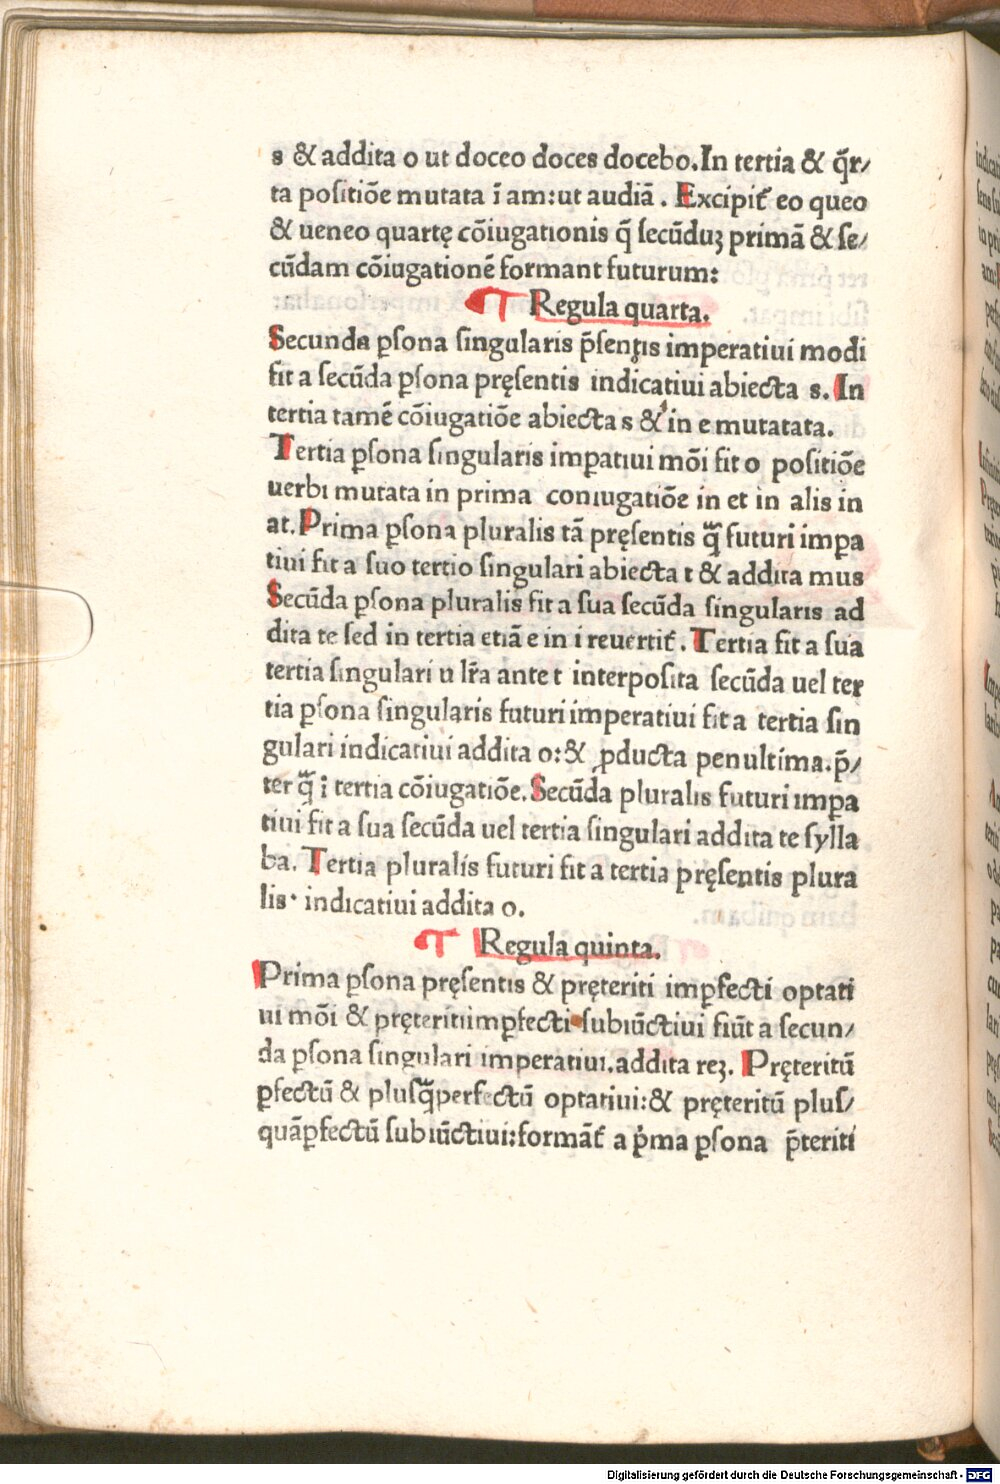 s & addita o ut doceo doces docebo.In tertia & q̄r/
ta poſitiōe mutata ī am:ut audiā . Excipit᷑ eo queo
& ueneo quartę cōiugationis q̄ ſecūduꝫ primā & ſe/
cūdam cōiugationē formant futurum:
¶ Regula quarta.
Secunda ꝑſona ſingularis p̄ſentis imperatiui modi
fit a ſecūda ꝑſona pręſentis indicatiui abiecta s. In
tertia tamē cōiugatiōe abiecta s & in e mutatata.
Tertia ꝑſona ſingularis impatiui mōi fit o poſitiōe
uerbi mutata in prima coniugatiōe in et in alis in
at. Prima ꝑſona pluralis tā pręſentis q̄ futuri impa
tiui fit a ſuo tertio ſingulari abiecta t & addita mus
Secūda ꝑſona pluralis fit a ſua ſecūda ſingularis ad
dita te ſed in tertia etiā e in i reuertit᷑ . Tertia fit a ſua
tertia ſingulari u lr̄a ante t interpoſita ſecūda uel ter
tia ꝑſona ſingularis futuri imperatiui fit a tertia ſin
gulari indicatiui addita o:& ꝓducta penultima.p̄/
ter q̄ i tertia cōiugatiōe. Secūda pluralis futuri impa
tiui fit a ſua ſecūda uel tertia ſingulari addita te ſylla
ba. Tertia pluralis futuri fit a tertia pręſentis plura
lis· indicatiui addita o.
¶ Regula quinta.
Prima ꝑſona pręſentis & pręteriti imꝑfecti optati
ui mōi & pręteritiimꝑfecti ſubiūctiui fiūt a ſecun/
da ꝑſona ſingulari imperatiui.addita reꝫ. Pręteritū
ꝑfectū & pluſq̄perfectū optatiui:& pręteritū pluſ/
quāꝑfectū ſubiūctiui:formāt᷑ a p̍ma ꝑſona p̄teriti
Digitalisierung gefördert durch die Deutsche Forschungsgemeinschaft - DFG